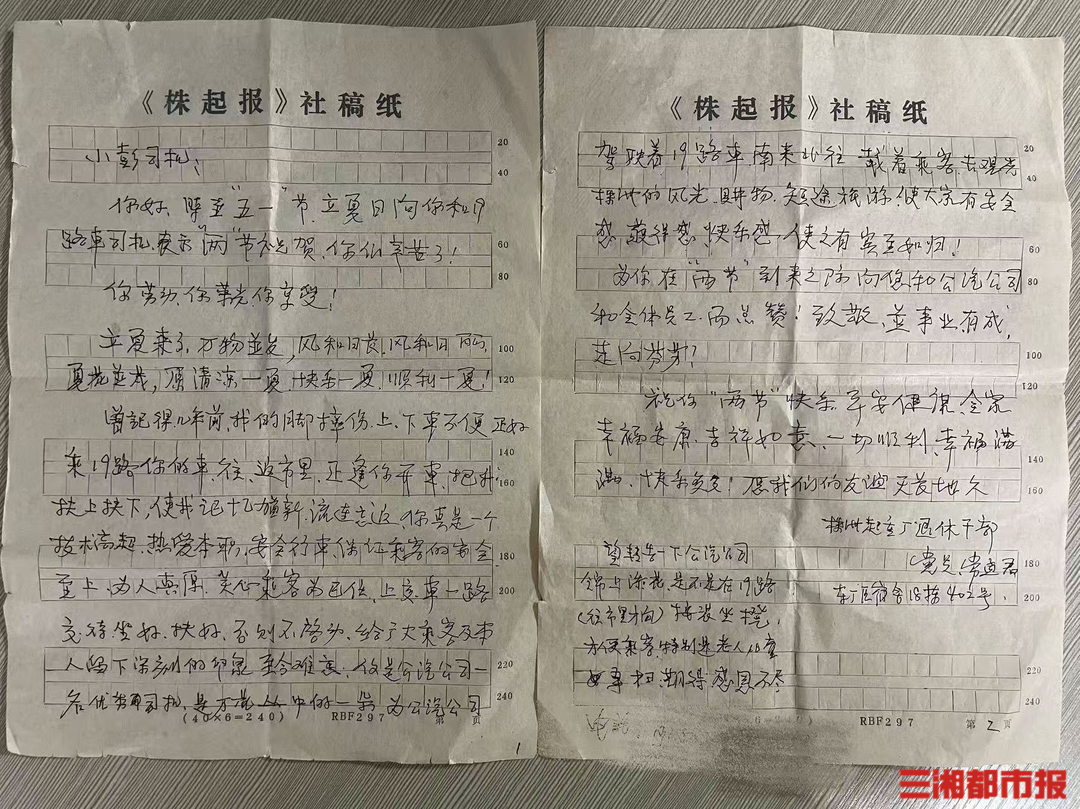 《株起报》社稿纸
小彭司机：
你好、临至"五一"节、立夏日向你和19
路车司机、表示"两"节祝贺、你们辛苦了！
你劳动、你光荣你享受！
立夏来了、万物并发，风和日
夏花并茂，愿清凉一夏 快乐一夏 顺利一夏！
曾記得几年前，我的脚摔伤、上、下車不便 正好
乘19路你的車、往、返市里、正逢你开車、把我
扶上扶下，使我记忆犹新、流连忘返 你真是一个
技术高超、热爱本职、安全行車、保证乘客的安全
至上、为人 、 乘客为己任、上 車一路
交待坐好、扶好、否则不啓动、给予大乘客及本
人留下深刻的印象 至今难忘；你是公汽公司一
名优秀司机，是 中的一朵 为公汽公司
20
40
60
80
100
120
140
160
180
200
220
240
(40×6=240) RBF297 第 页
1
《株起报》社稿纸
驾驶着19路車南来北往 载着乘客去观光
株洲的风光、购物、短途旅游、使大家有安全
感 获得感 快乐感，使之有宾至如归！
为你在"两节"到来之际向您和公汽公司
和全体员工而点赞！致敬，並事业有成，
走向
祝你"两节"快乐 平安健 全家
幸福安康、吉祥如意、一切顺利、幸福满
满、快乐多多！愿我们的友谊天长地久
株洲起重厂退休干部
（党员）
望転告一下公汽公司
锦上添花，是不是在19路
（往市里方向） 装坐櫈，
方便乘客，特别是老人儿童
感恩不尽
东厂区宿舍18栋402号
20
40
60
80
100
120
140
160
180
200
220
240
RBF297 第2页
三湘都市报